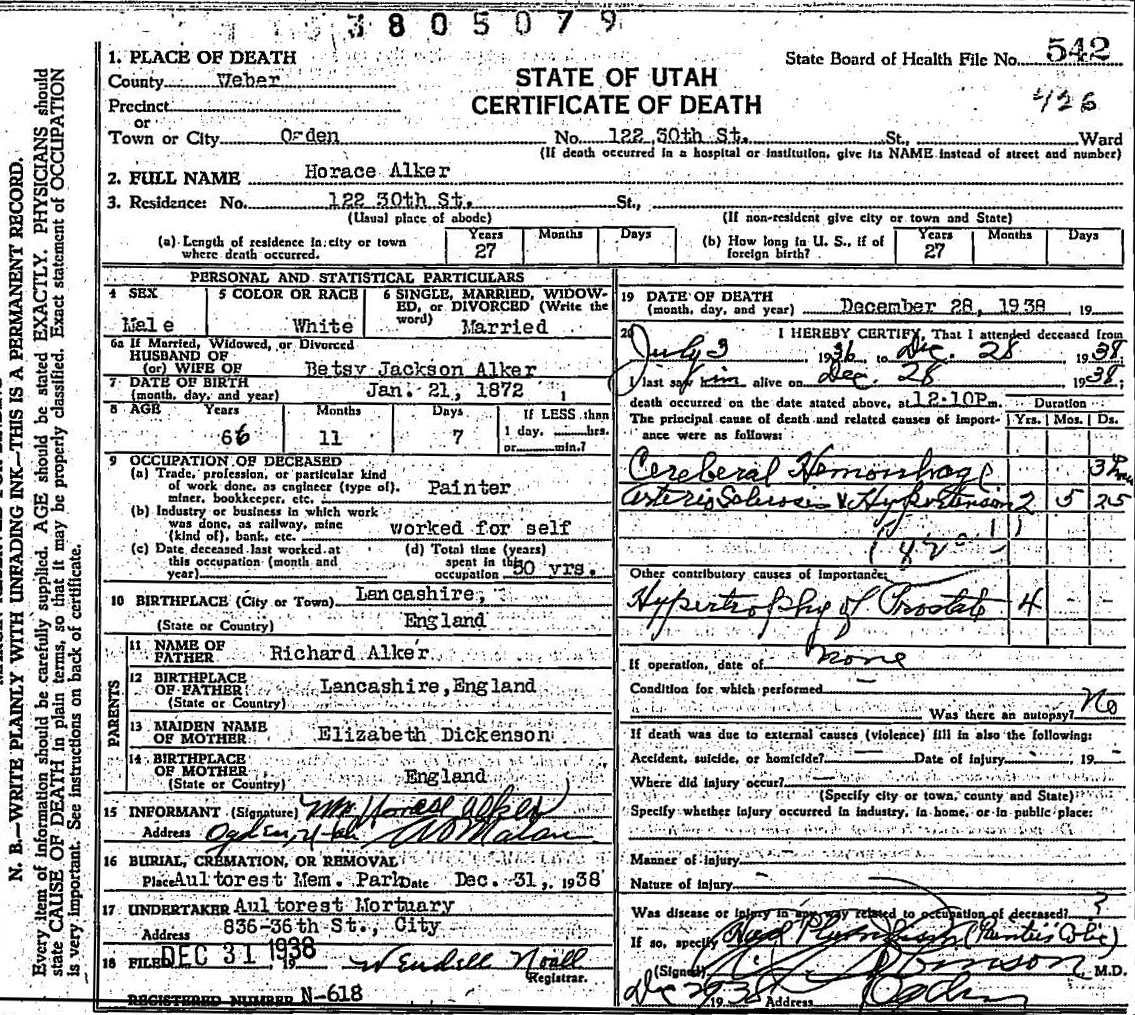 3805079
State Board of Health File No. 542
426
STATE OF UTAH
CERTIFICATE OF DEATH
1. PLACE OF DEATH
County Weber
Precinct
or
Town or City Ogden No. 122 30th St. St., Ward
(If death occurred in a hospital or institution, give its NAME instead of street and number)
2. FULL NAME Horace Alker
3. Residence: No. 122 30th St. St.,
(Usual place of abode) (If non-resident give city or town and State)
(a) Length of residence in city or town where death occurred. Years 27 Months Days
(b) How long in U. S., if of foreign birth? Years 27 Months Days
PERSONAL AND STATISTICAL PARTICULARS
4 SEX Male
5 COLOR OR RACE White
6 SINGLE, MARRIED, WIDOWED, or DIVORCED (Write the word) Married
6a If Married, Widowed, or Divorced
HUSBAND OF
(or) WIFE OF Betsy Jackson Alker
7 DATE OF BIRTH
(month, day, and year) Jan. 21, 1872
8 AGE Years 66 Months 11 Days 7 If LESS than 1 day, hrs. or min.?
9 OCCUPATION OF DECEASED
(a) Trade, profession, or particular kind of work done, as engineer (type of), miner, bookkeeper, etc. Painter
(b) Industry or business in which work was done, as railway, mine (kind of), bank, etc. worked for self
(c) Date deceased last worked at this occupation (month and year)
(d) Total time (years) spent in this occupation 50 yrs.
10 BIRTHPLACE (City or Town) Lancashire,
(State or Country) England
PARENTS
11 NAME OF FATHER Richard Alker
12 BIRTHPLACE OF FATHER (State or Country) Lancashire, England
13 MAIDEN NAME OF MOTHER Elizabeth Dickenson
14 BIRTHPLACE OF MOTHER (State or Country) England
15 INFORMANT (Signature) Mrs Horace Alker
Address Ogden, Utah
16 BURIAL, CREMATION, OR REMOVAL
Place Aultorest Mem. Park Date Dec. 31, 1938
17 UNDERTAKER Aultorest Mortuary
Address 836-36th St., City
18 FILED DEC 31 1938, 19 Wendell Noall
Registrar.
REGISTERED NUMBER N-618
19 DATE OF DEATH
(month, day, and year) December 28, 1938, 19
20 I HEREBY CERTIFY, That I attended deceased from
July 3 1936 to Dec. 28 1938,
I last saw him alive on Dec. 28 1938;
death occurred on the date stated above, at 12:10P.m. Duration
The principal cause of death and related causes of importance were as follows: Yrs. Mos. Ds.
Cerebral Hemorrhage 3
Arterio Sclerosis & Hypertension 2 5 25
Other contributory causes of importance:
Hypertrophy of Prostate 4 - -
If operation, date of none
Condition for which performed
Was there an autopsy? No
If death was due to external causes (violence) fill in also the following:
Accident, suicide, or homicide? Date of injury, 19
Where did injury occur?
(Specify city or town, county and State)
Specify whether injury occurred in industry, in home, or in public place:
Manner of injury
Nature of injury
Was disease or injury in any way related to occupation of deceased? ?
If so, specify (Painters Colic)
(Signed) M.D.
Dec 1938 19 Address Ogden
N. B.—WRITE PLAINLY WITH UNFADING INK—THIS IS A PERMANENT RECORD.
Every item of information should be carefully supplied. AGE should be stated EXACTLY. PHYSICIANS should
state CAUSE OF DEATH in plain terms, so that it may be properly classified. Exact statement of OCCUPATION
is very important. See instructions on back of certificate.